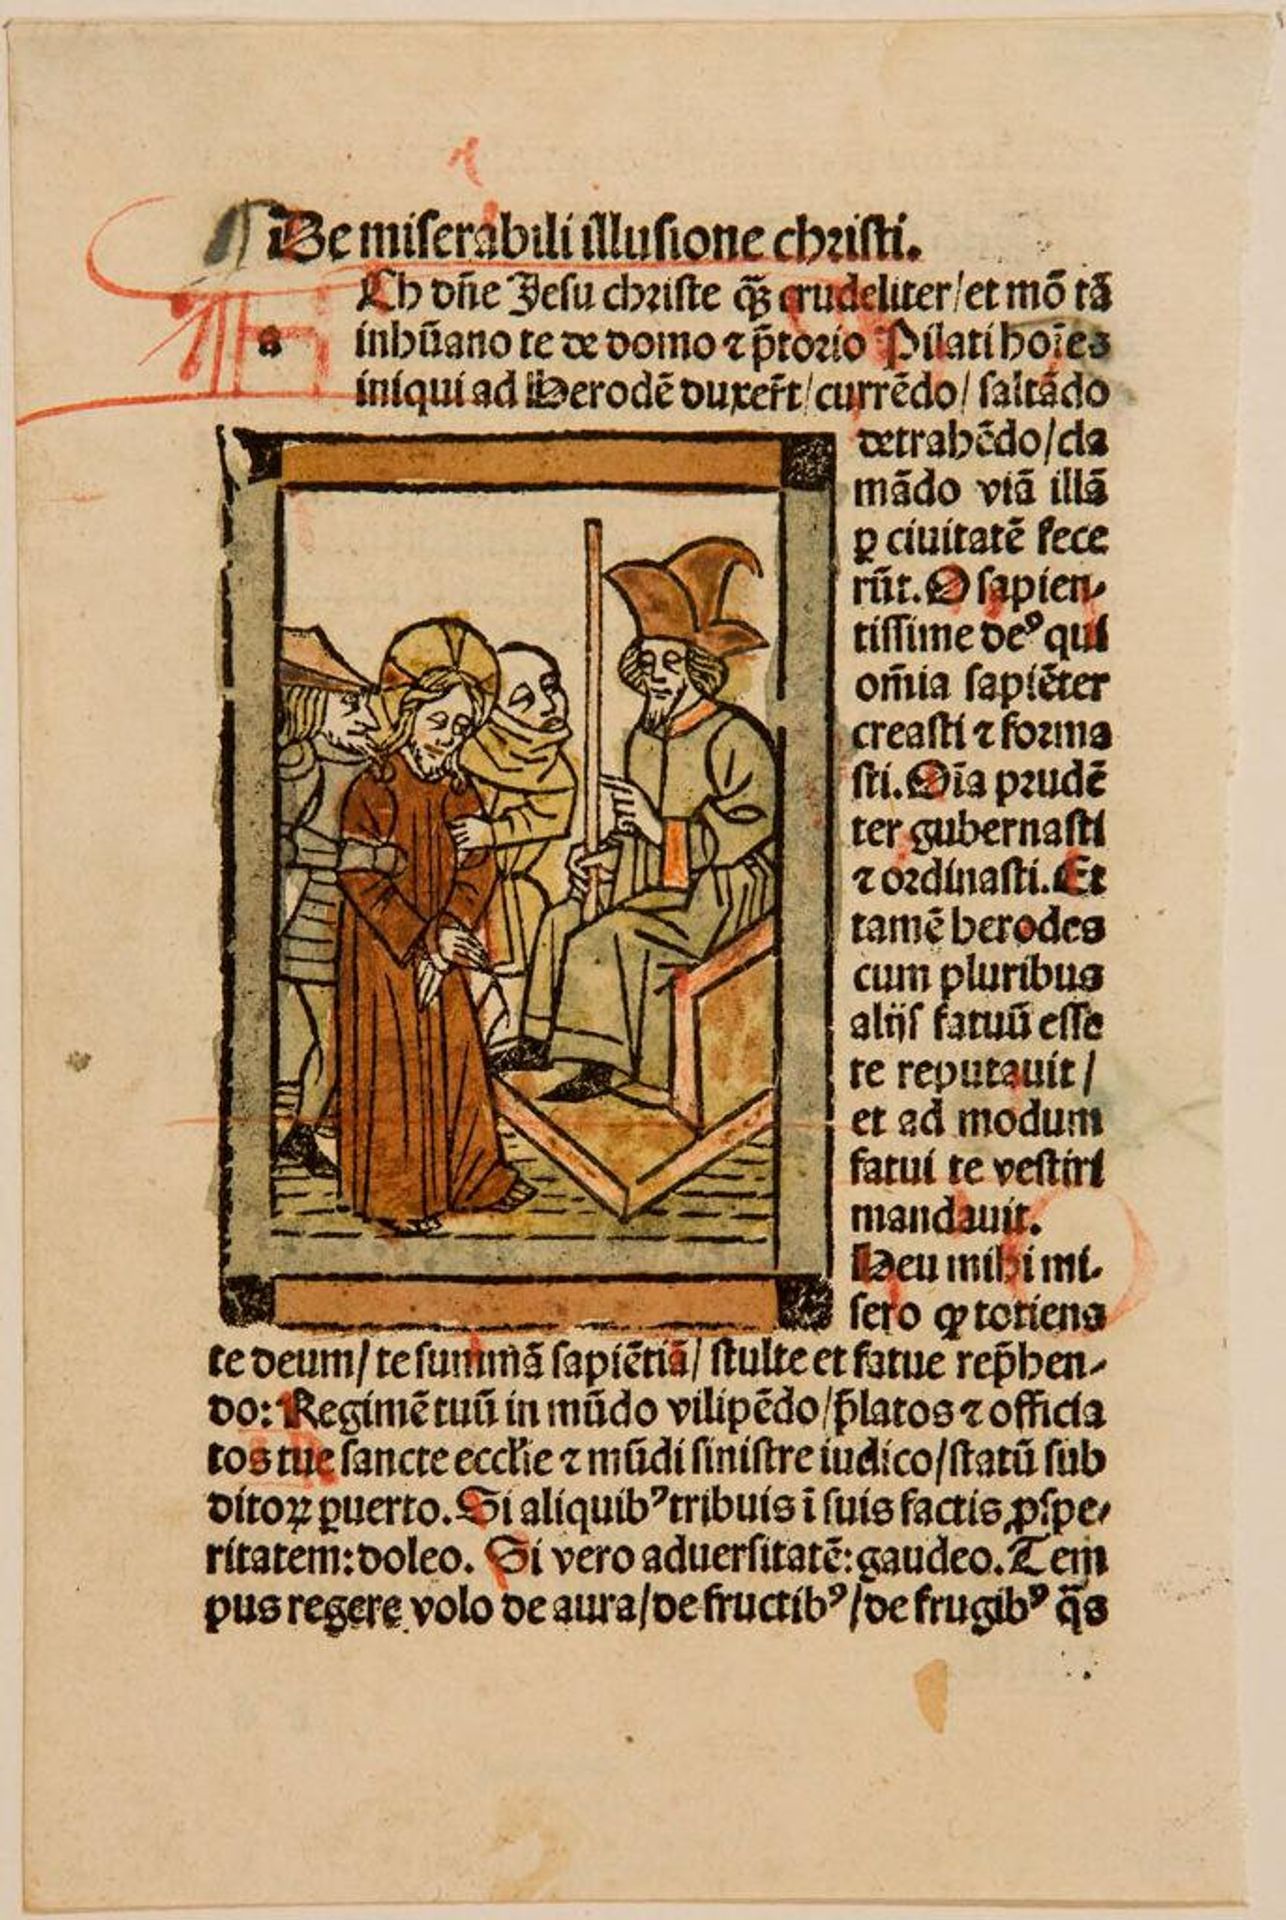 De miserabili illusione christi.
Ch dñe Jesu christe qꝫ̃ crudeliter/et mõ tã
a inhũano te de domo ⁊ p̃torio Pilati hoı̃es
iniqui ad Herodẽ duxer̃t/currẽdo/saltãdo
detrahẽdo/cla
mãdo viã illã
ꝑ ciuitatẽ fece
rũt. O sapien⸗
tissime deꝰ qui
om̃ia sapiẽter
creasti ⁊ forma
sti. Oı̃a prudẽ
ter gubernasti
⁊ ordinasti. Et
tamẽ herodes
cum pluribus
alijs fatuũ esse
te reputauit/
et ad modum
fatui te vestiri
mandauit.
Heu mihi mi⸗
sero ꝙ totiens
te deum/te summã sapiẽtiã/stulte et fatue rep̃hen⸗
do: Regimẽ tuũ in mũdo vilipẽdo/p̃latos ⁊ officia
tos tue sancte eccl̃ie ⁊ mũdi sinistre iudico/statũ sub
ditoꝝ ꝑuerto. Si aliquibꝰ tribuis ĩ suis factis ꝓspe⸗
ritatem: doleo. Si vero aduersitatẽ: gaudeo. Tem
pus regere volo de aura/de fructibꝰ/de frugibꝰ q̃s